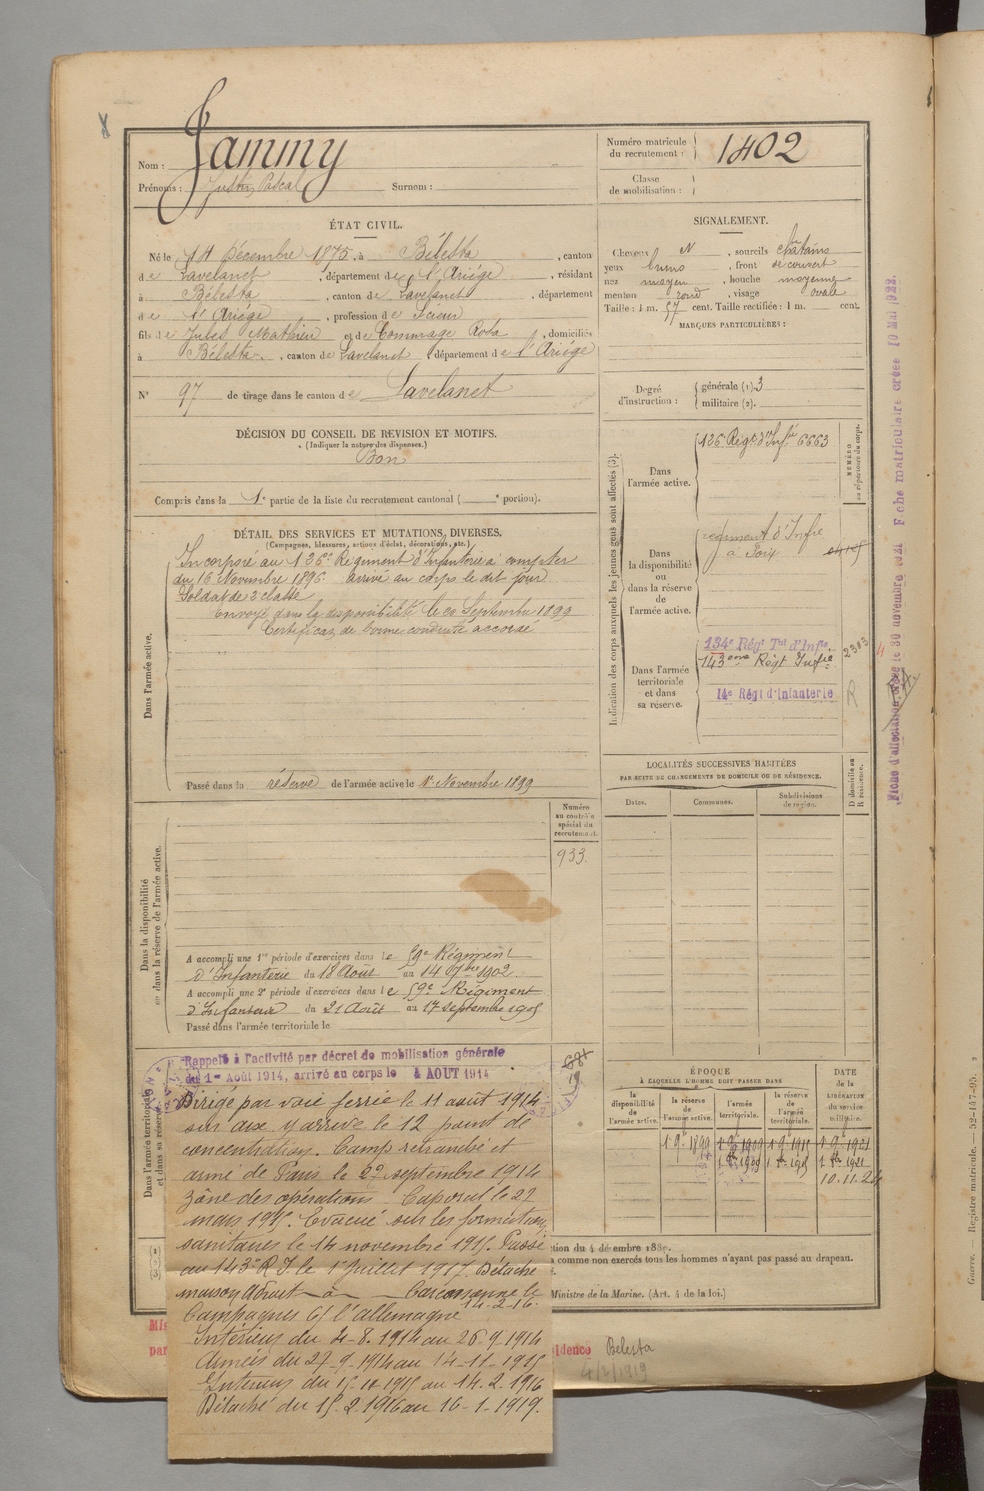 Nom : Jammy
Prénoms : Justin Pascal Surnom :
Numéro matricule du recrutement : 1402
Classe de mobilisation :
ÉTAT CIVIL.
Né le 14 Décembre 1875, à Bélesta, canton
de Lavelanet, département de l'Ariége, résidant
à Bélesta, canton de Lavelanet, département
de l'Ariége, profession de Scieur
fils de Jules Mathieu et de Rosa, domiciliés
à Bélesta, canton de Lavelanet, département de l'Ariége
N° 97 de tirage dans le canton de Lavelanet
DÉCISION DU CONSEIL DE REVISION ET MOTIFS.
(Indiquer la nature des dispenses.)
Bon
Compris dans la 1e partie de la liste du recrutement cantonal ( e portion).
SIGNALEMENT.
Cheveux N, sourcils châtains
yeux bruns, front découvert
nez moyen, bouche moyenne
menton rond, visage ovale
Taille : 1 m. 57 cent. Taille rectifiée : 1 m. cent.
MARQUES PARTICULIÈRES :
Degré d'instruction : générale (1). 3
militaire (2).
DÉTAIL DES SERVICES ET MUTATIONS DIVERSES.
(Campagnes, blessures, actions d'éclat, décorations, etc.)
Dans l'armée active.
Incorporé au 126e Régiment d'Infanterie à compter
du 16 Novembre 1896 arrivé au corps le dit jour
Soldat de 2 classe
Envoyé dans la disponibilité le 20 Septembre 1899
Certificat de bonne conduite accordé
Passé dans la réserve de l'armée active le 1er Novembre 1899
Indication des corps auxquels les jeunes gens sont affectés (3).
NUMÉRO au répertoire du corps.
Dans l'armée active.
126 Régt d'Infie 6663
Dans la disponibilité ou dans la réserve de l'armée active.
régiment d'Infie
à Foix
Dans l'armée territoriale et dans sa réserve.
134e Régt Tal d'Infie
143eme Régt Infie
14e Régt d'Infanterie
2303
R
LOCALITÉS SUCCESSIVES HABITÉES
PAR SUITE DE CHANGEMENTS DE DOMICILE OU DE RÉSIDENCE.
Dates. Communes. Subdivisions de région. D domicile ou R résidence.
Numéro au contrôle spécial du recrutement.
933
Dans la disponibilité ou dans la réserve de l'armée active.
A accompli une 1re période d'exercices dans le 59e Régiment
d'Infanterie du 18 Août au 14 7bre 1902
A accompli une 2e période d'exercices dans le 59e Régiment
d'Infanterie du 21 Août au 17 septembre 1905
Passé dans l'armée territoriale le
Dans l'armée territoriale et dans sa réserve
Rappelé à l'activité par décret de mobilisation générale
du 1er Août 1914, arrivé au corps le 4 AOUT 1914
Dirigé par voie ferrée le 11 août 1914
sur aux y arrive le 12 point de
concentration. Camp retranché et
armé de Paris le 27 septembre 1914
zône des opérations Caporal le 27
mars 1915. Evacué sur les formations
sanitaires le 14 novembre 1915. Passé
au 143e R.I. le 1er Juillet 1917. Détaché
maison à Carcassonne le
14-2-16.
Campagnes C/ l'allemagne
Intérieur du 4-8-1914 au 26-9-1914
Armées du 27-9-1914 au 14-11-1915
Interieur du 15-11-1915 au 14-2-1916
Détaché du 15-2-1916 au 16-1-1919.
ÉPOQUE
À LAQUELLE L'HOMME DOIT PASSER DANS
DATE de la LIBÉRATION du service militaire.
la disponibilité de l'armée active. la réserve de l'armée active. l'armée territoriale. la réserve de l'armée territoriale.
1 9e 1899 1 9e 1909 1 9e 1915 1 9e 1921
1 8e 1909 1 8e 1915 1 8e 1921
10.11.24
tion du 4 décembre 1889.
a comme non exercés tous les hommes n'ayant pas passé au drapeau.
Ministre de la Marine. (Art. 4 de la loi.)
sidence Bélesta
4/2/1919
Fiche d'affectation créée le 30 novembre 1921 Fiche matriculaire créée 10 Mai 1922.
Guerre. — Registre matricule. — 52-147-95.